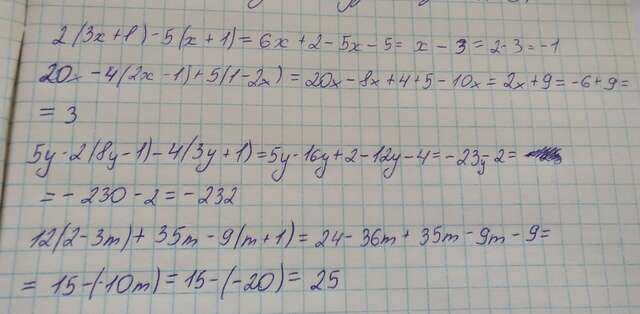 2(3x+1)-5(x+1)=6x+2-5x-5=x-3=2-3=-1
20x-4(2x-1)+5(1-2x)=20x-8x+4+5-10x=2x+9=-6+9=
=3
5y-2(8y-1)-4(3y+1)=5y-16y+2-12y-4=-23y-2=
=-230-2=-232
12(2-3m)+35m-9(m+1)=24-36m+35m-9m-9=
=15-(-10m)=15-(-20)=25